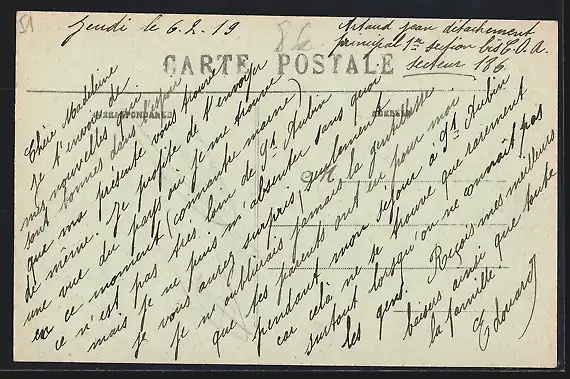 51
Jeudi le 6.2.19
86
Artaud Jean détachement
principal 1re section bis C.O.A.
secteur 186
CARTE POSTALE
CORRESPONDANCE
ADRESSE
Chère Madeleine
Je t'envoie de
mes nouvelles qui
sont bonnes dans l'espoir
que ma présente vous trouve
de même. Je profite de t'envoyer
une vue du pays où je me trouve
en ce moment (commandre marne)
ce n'est pas très loin de St Aubin
mais je ne puis m'absenter sans quoi
je vous aurez surpris, seulement
je n'oublierais jamais la gentillesse
que tes parents ont eu pour moi
pendant mon séjour à St Aubin
car cela ne se trouve que rarement
surtout lorsqu'on ne connaît pas
les gens. Reçois mes meilleurs
baisers ainsi que toute
la famille.
Edouard